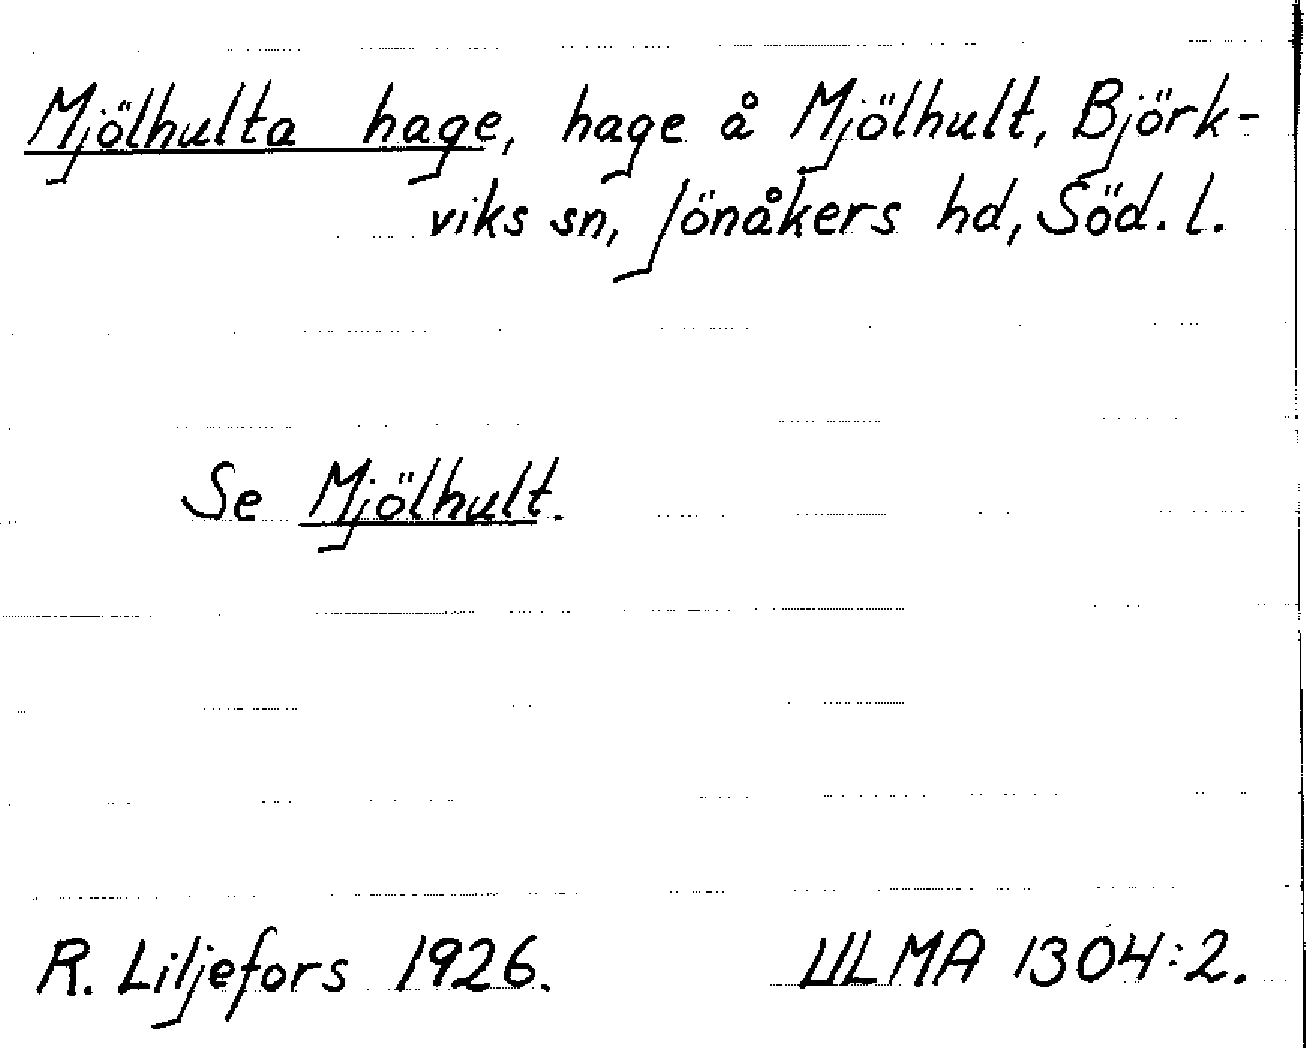 Mjölhulta hage, hage å Mjölhult, Björk-
viks sn, Jönåkers hd, Söd. l.
Se Mjölhult.
R. Liljefors 1926. ULMA 1304:2.